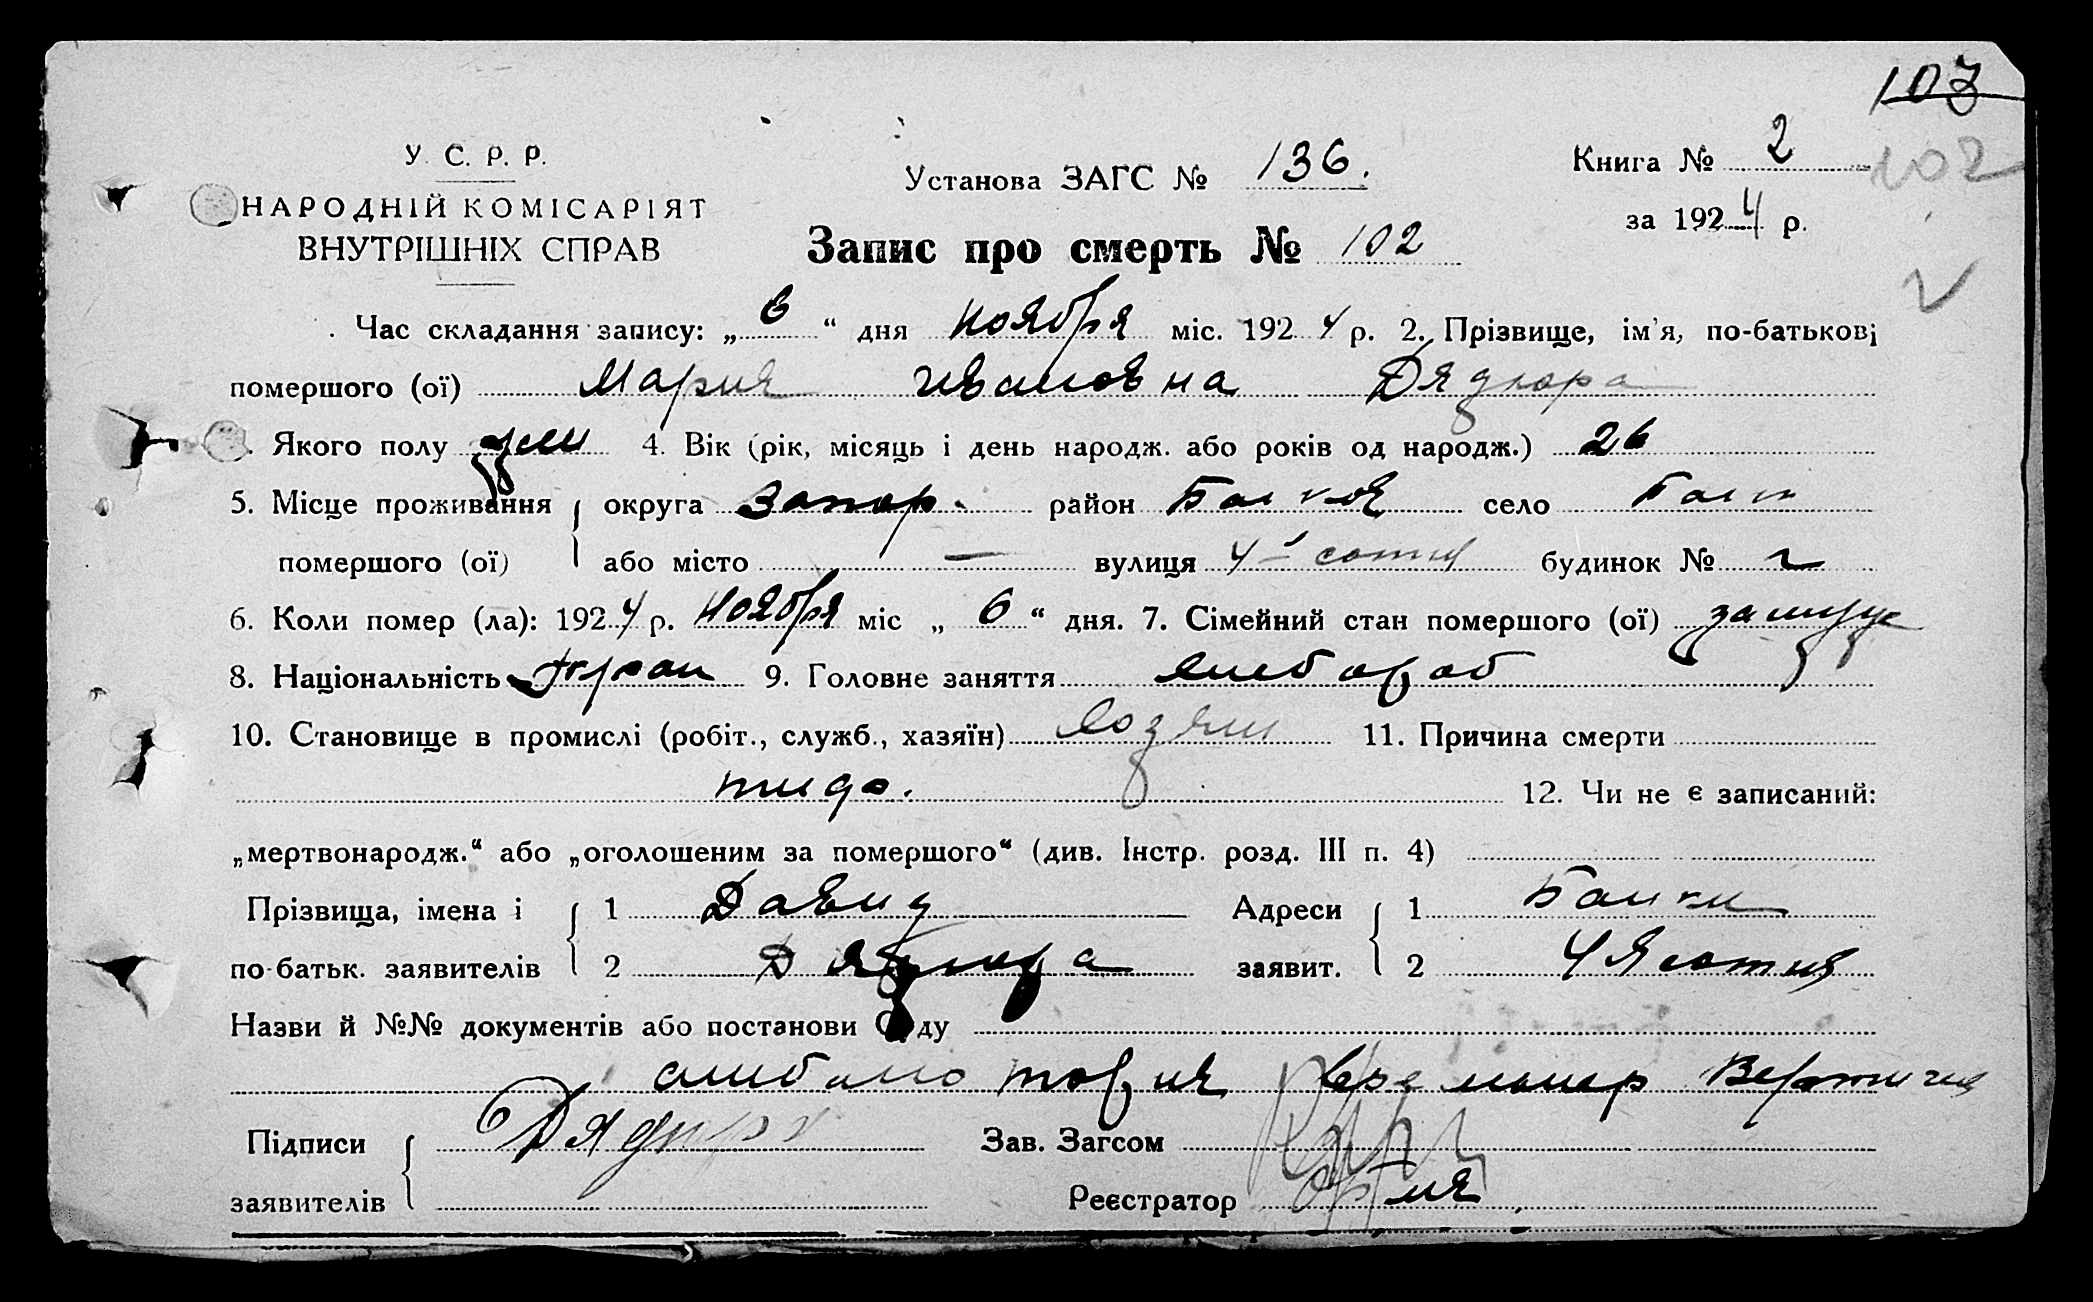 103
102
У. С. Р. Р.
НАРОДНІЙ КОМІСАРІЯТ
ВНУТРІШНІХ СПРАВ
Установа ЗАГС № 136.
Книга № 2
за 1924 р.
Запис про смерть № 102
Час складання запису: „6“ дня ноября міс. 1924 р. 2. Прізвище, ім'я, по-батькові
помершого (ої) Мария Ивановна Дядюра
Якого полу жен 4. Вік (рік, місяць і день народж. або років од народж.) 26
5. Місце проживання округа Запор. район Балков село Балки
помершого (ої) або місто — вулиця 4-я сотня будинок №
6. Коли помер (ла): 1924 р. ноября міс „6“ дня. 7. Сімейний стан помершого (ої) замуж
8. Національність Украи 9. Головне заняття хлебороб
10. Становище в промислі (робіт., служб., хазяїн) хозяин 11. Причина смерти
12. Чи не є записаний:
„мертвонародж.“ або „оголошеним за помершого“ (див. Інстр. розд. III п. 4)
Прізвища, імена і 1 Давид Адреси 1 Балки
по-батьк. заявителів 2 Дядюра заявит. 2 4 я сотня
Назви й №№ документів або постанови Суду
Підписи Дядюра Зав. Загсом
заявителів Реєстратор